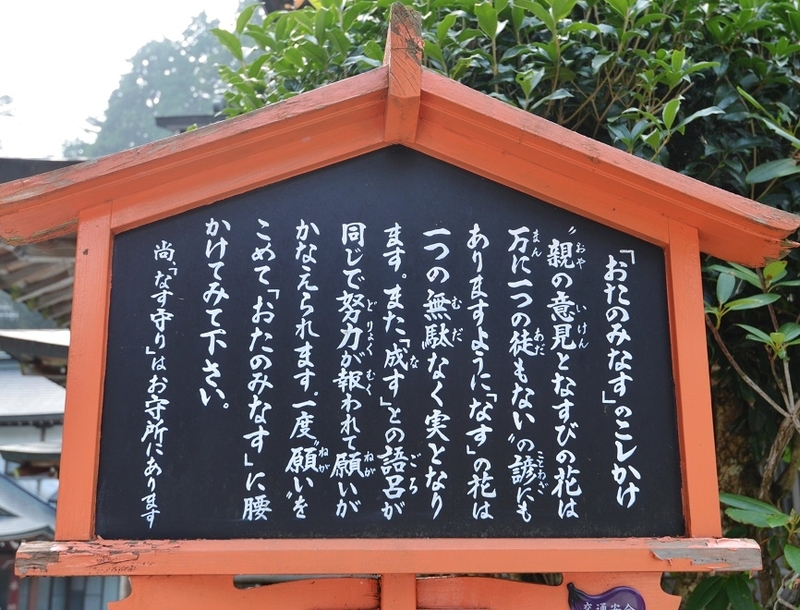 「おたのみなす」のこしかけ
〝親の意見となすびの花は
万に一つの徒もない〟の諺にも
ありますように「なす」の花は
一つの無駄なく実となり
ます。また「成す」との語呂が
同じで努力が報われて願いが
かなえられます。一度〝願い〟を
こめて「おたのみなす」に腰
かけてみて下さい。
尚、「なす守り」はお守所にあります
交通安全